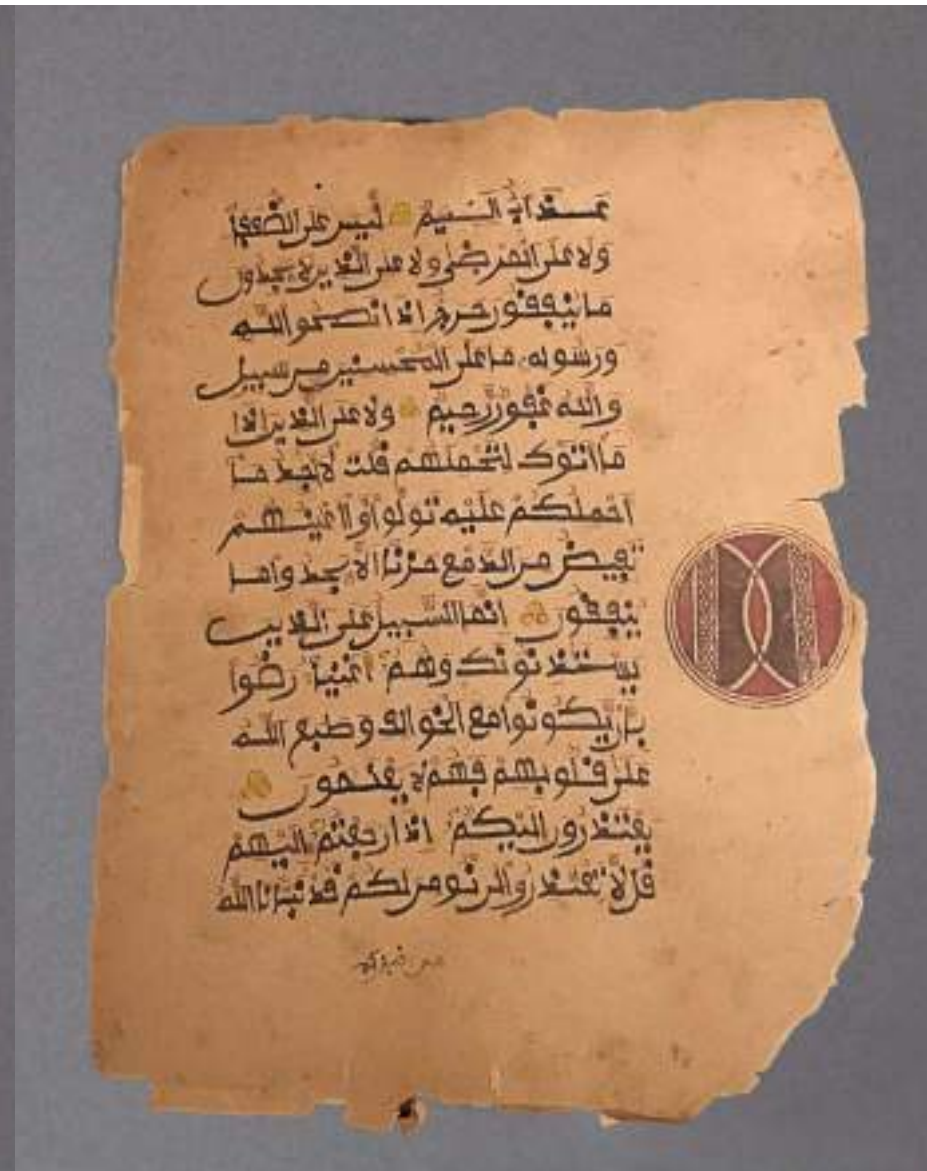 عذاب اليم ليس على الضعفا
ولا على المرضى ولا على الذين لا يجدون
ما ينفقون حرج اذا نصحوا لله
ورسوله ما على المحسنين من سبيل
والله غفور رحيم ولا على الذين اذا
ما اتوك لتحملهم قلت لا اجد ما
احملكم عليه تولوا واعينهم
تفيض من الدمع حزنا الا يجدوا ما
ينفقون انما السبيل على الذين
يستذنونك وهم اغنيا رضوا
بان يكونوا مع الخوالف وطبع الله
على قلوبهم فهم لا يعلمون
يعتذرون اليكم اذا رجعتم اليهم
قل لا تعتذروا لن نومن لكم قد نبانا الله